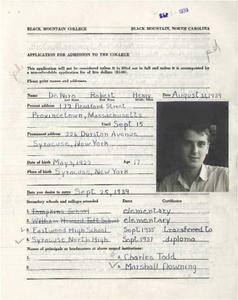 SEP 1939
BLACK MOUNTAIN COLLEGE BLACK MOUNTAIN, NORTH CAROLINA
APPLICATION FOR ADMISSION TO THE COLLEGE
This application will not be considered unless it is filled out in full and unless it is accompanied
by a non-refundable application fee of five dollars ($5.00).
Name De Niro Robert Henry Date August 31, 1939
Last Name First Name Middle Name
Present address 173 Bradford Street
Provincetown, Massachusetts
Until Sept 15
Permanent address 226 Durston Avenue
Syracuse, New York
Date of birth May 3, 1922 Age 17
Place of birth Syracuse, New York
Date you desire to enter Sept. 25, 1939
Secondary schools and colleges attended Dates Certificate
1. Tompkins School elementary
2. William Howard Taft School elementary
3. Eastwood High School Sept 1935 transferred to
4. Syracuse North High Sept 1937 diploma
Names of principals or headmasters at above named institutions:
3. Charles Todd
4. Marshall Downing